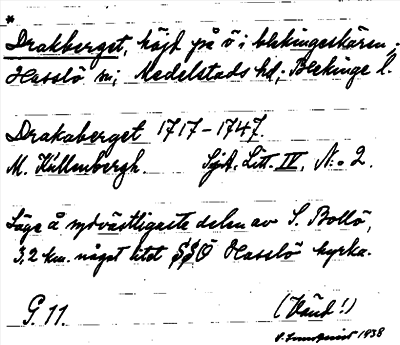 *
Drakberget, höjd på ö i blekingeskären;
Hasslö sn; Medelstads hd; Blekinge l.
Drakaberget 1717–1747.
M. Kullenbergh. Sjök. Litt. IV, No 2.
Läge å sydvästligaste delen av S. Bollö,
3,2 km. något litet SSÖ Hasslö kyrka.
G. 11. (Vänd!)
1938